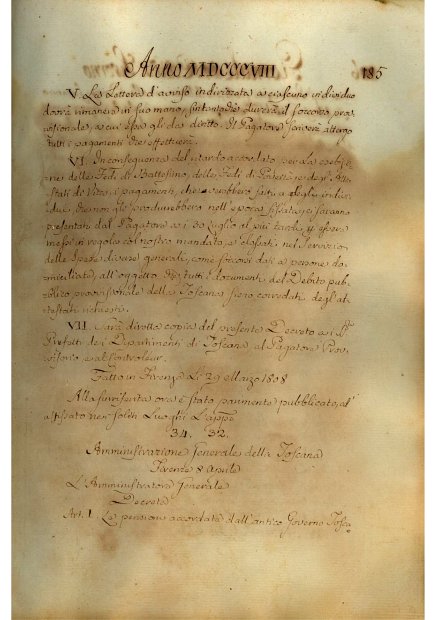 Anno MDCCCVIII
185
V. La Lettera d'avviso indirizzata a ciascuno individuo
dovrà rimanere in suo mano, sintantoche durerà il soccorso prov-
visionale, a cui essa gli da diritto. Il Pagatore scriverà a tergo
tutti i pagamenti che effettuerà.
VI. In conseguenza del ritardo accordato per la esibizio-
ne delle Fedi di Battesimo, delle Fedi di Povertà, e degl'At-
testati di Vita, i pagamenti, che dovrebbero farsi a quegli indivi-
dui, che non gli produrebbero nell'epoca fissata,
presentati dal Pagatore a i 30 Luglio al più tardi, e
messi in regola col nostro mandato, e classati nel Servizio
delle Spese diverse generali, come soccorsi dati a persone do-
miciliate, all'oggetto che tutti i documenti del Debito pub-
blico provvisionale della Toscana sieno corredati degl'at-
testati richiesti.
VII. Sarà diretta copia del presente Decreto a i SS.
Prefetti dei Dipartimenti di Toscana al Pagatore Prov-
visorio e al Controleur.
Fatto in Firenze Li 29 Marzo 1808
Alla suddetta ora è stato parimente pubblicato, ed
affissato nei soliti Luoghi L'appo
34. 32.
Amministrazione Generale della Toscana
Firenze 8 Aprile
L'Amministratore Generale
Decreta
Art. I. Le pensioni accordate dall'antico Governo Tosca-